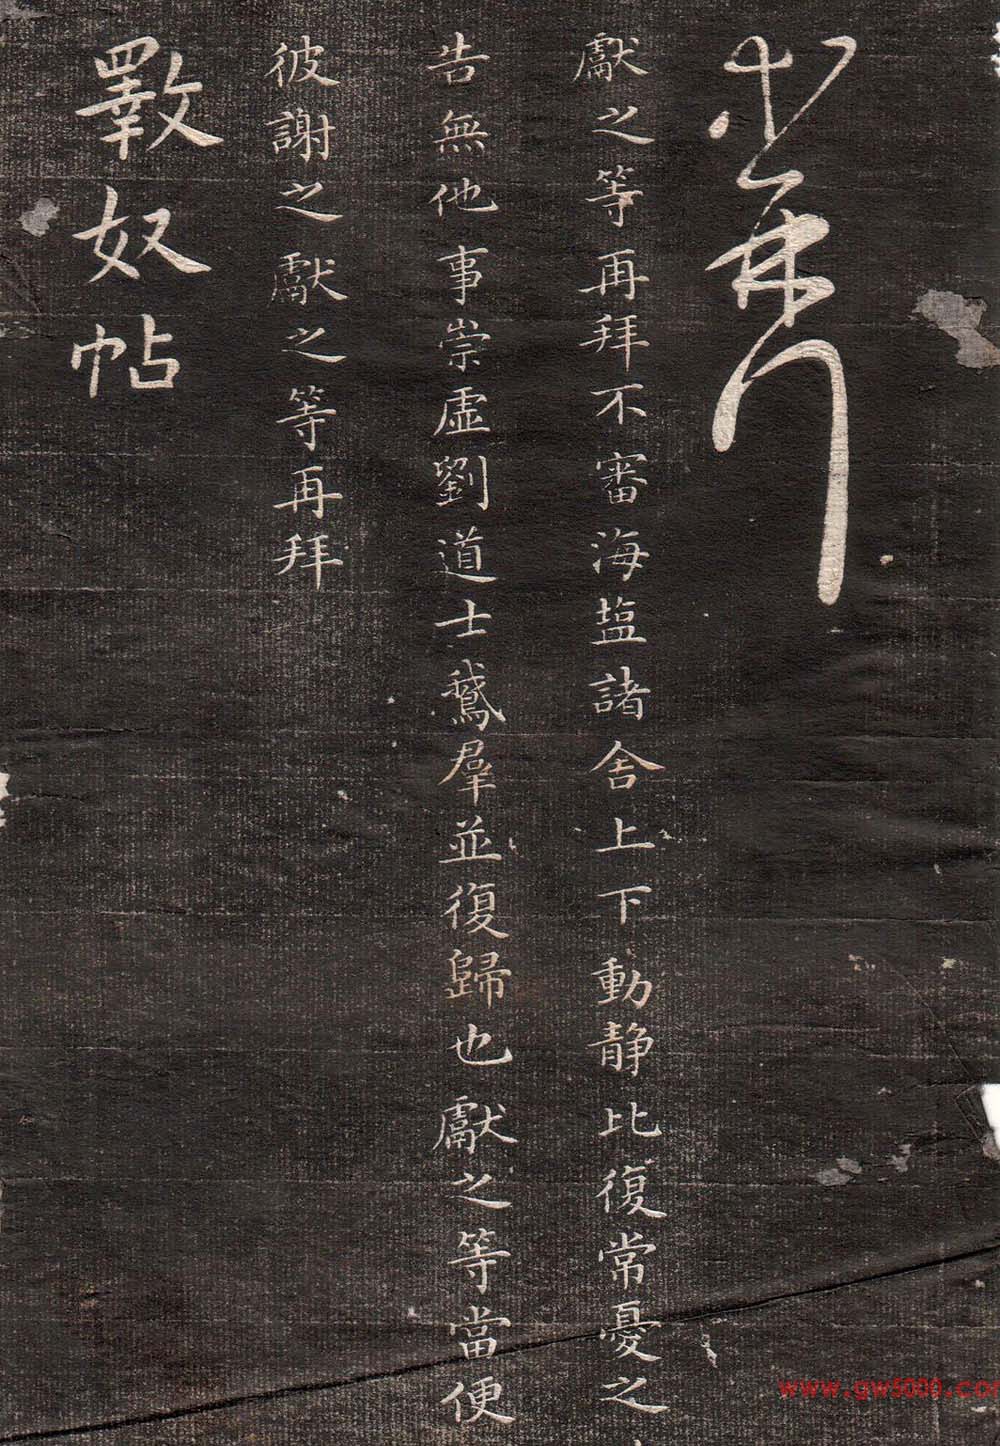 獻之等再拜不審海塩諸舍上下動静比復常憂之
告無他事崇虛劉道士鵝羣並復歸也獻之等當便
彼謝之獻之等再拜
斁奴帖
www.gw5000.co